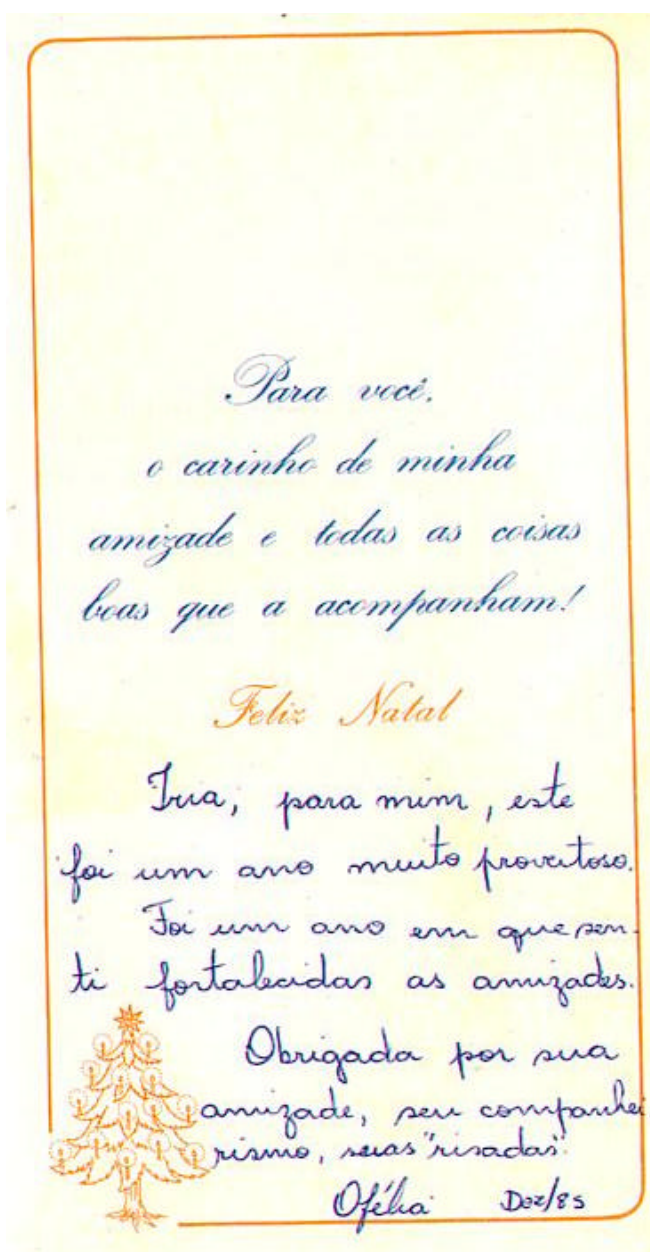 Para você,
o carinho de minha
amizade e todas as coisas
boas que a acompanham!
Feliz Natal
Iria, para mim, este
foi um ano muito proveitoso.
Foi um ano em que sen-
ti fortalecidas as amizades.
Obrigada por sua
amizade, seu companhei
rismo, suas "risadas".
Ofélia Dez/85